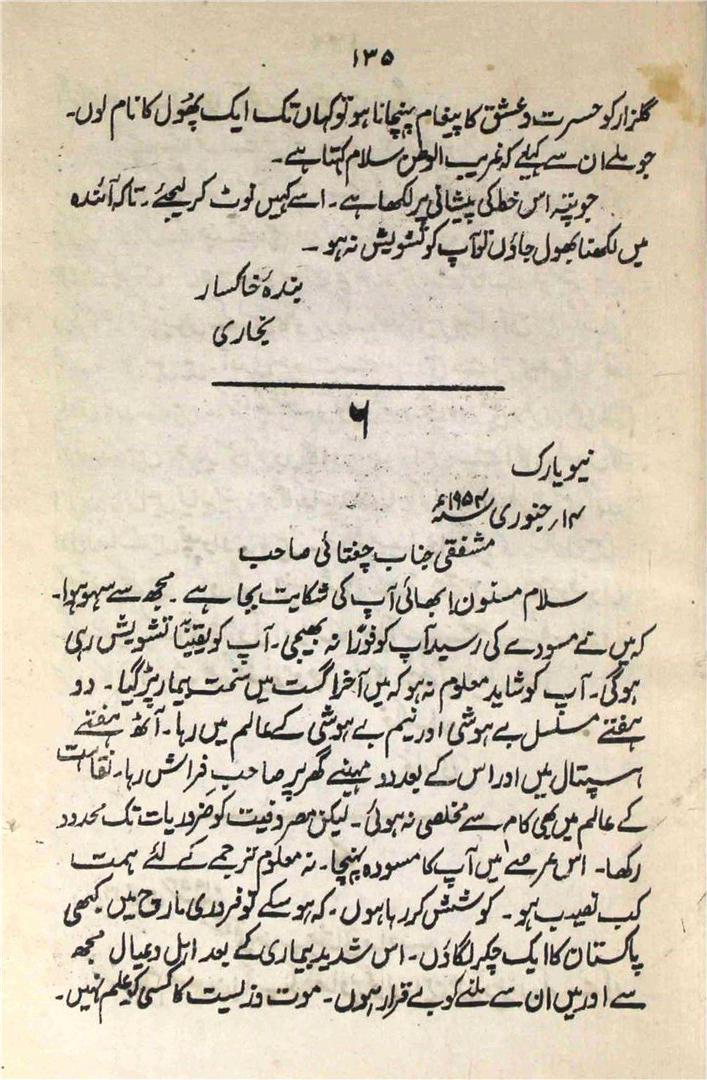 ۱۳۵
گلزار کو حسرت و عشق کا پیغام پہنچانا ہو تو کہاں تک ایک پھول کا نام لوں۔
جو ملے ان سے کہیے کہ غریب الوطن سلام کہتا ہے۔
جو پتہ اس خط کی پیشانی پر لکھا ہے۔ اسے کہیں نوٹ کر لیجئے۔ تاکہ آئندہ
میں لکھنا بھول جاؤں تو آپ کو تشویش نہ ہو ۔
بندۂ خاکسار
بخاری
۶
نیو یارک
۱۴ جنوری ۱۹۵۴ء
مشفقی جناب چغتائی صاحب
سلام مسنون! بھائی آپ کی شکایت بجا ہے۔ مجھ سے سہو ہوا۔
کہ میں نے مسودے کی رسید آپ کو فوراً نہ بھیجی۔ آپ کو یقیناً تشویش رہی
ہوگی۔ آپ کو شاید معلوم نہ ہو کہ میں آخر اگست میں سخت بیمار پڑ گیا۔ دو
ہفتے مسلسل بے ہوشی اور نیم بے ہوشی کے عالم میں رہا۔ آٹھ ہفتے
ہسپتال میں اور اس کے بعد دو مہینے گھر پر صاحبِ فراش رہا۔ نقاہت
کے عالم میں بھی کام سے مخلصی نہ ہوئی۔ لیکن مصروفیت کو ضروریات تک محدود
رکھا۔ اس عرصے میں آپ کا مسودہ پہنچا۔ نہ معلوم ترجمے کے لئے ہمت
کب نصیب ہو۔ کوشش کر رہا ہوں۔ کہ ہو سکے تو فروری مارچ میں کبھی
پاکستان کا ایک چکر لگاؤں۔ اس شدید بیماری کے بعد اہل و عیال مجھ
سے اور میں ان سے ملنے کو بے قرار ہوں۔ موت و زیست کا کسی کو علم نہیں۔